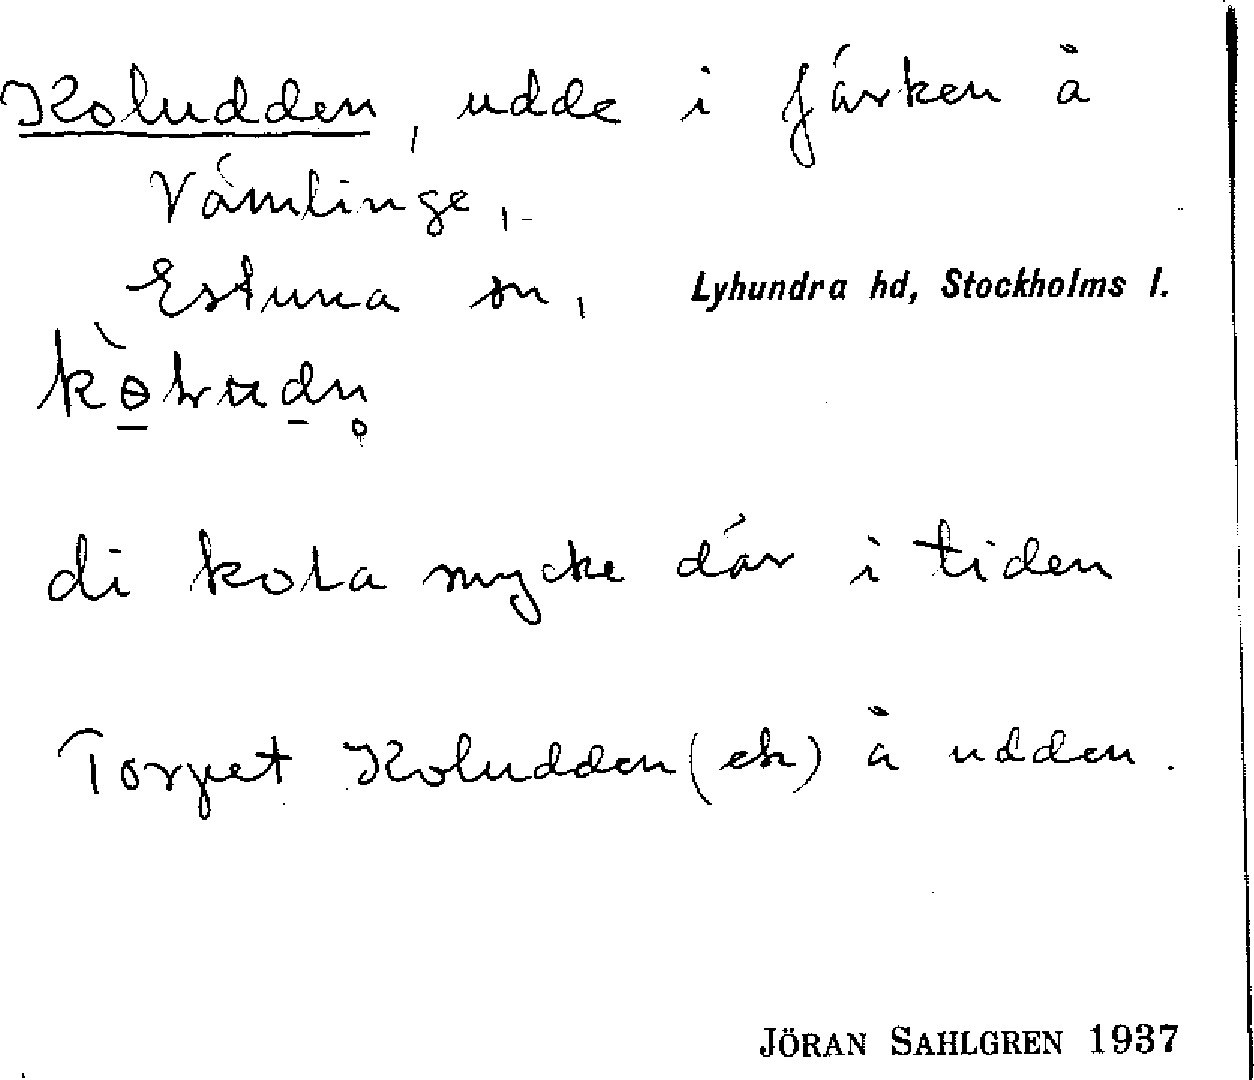 Koludden, udde i fjärken å
Vämlinge,
Estuna sn, Lyhundra hd, Stockholms l.
di kola mycke där i tiden
Torpet Koludden (ek) å udden.
JÖRAN SAHLGREN 1937